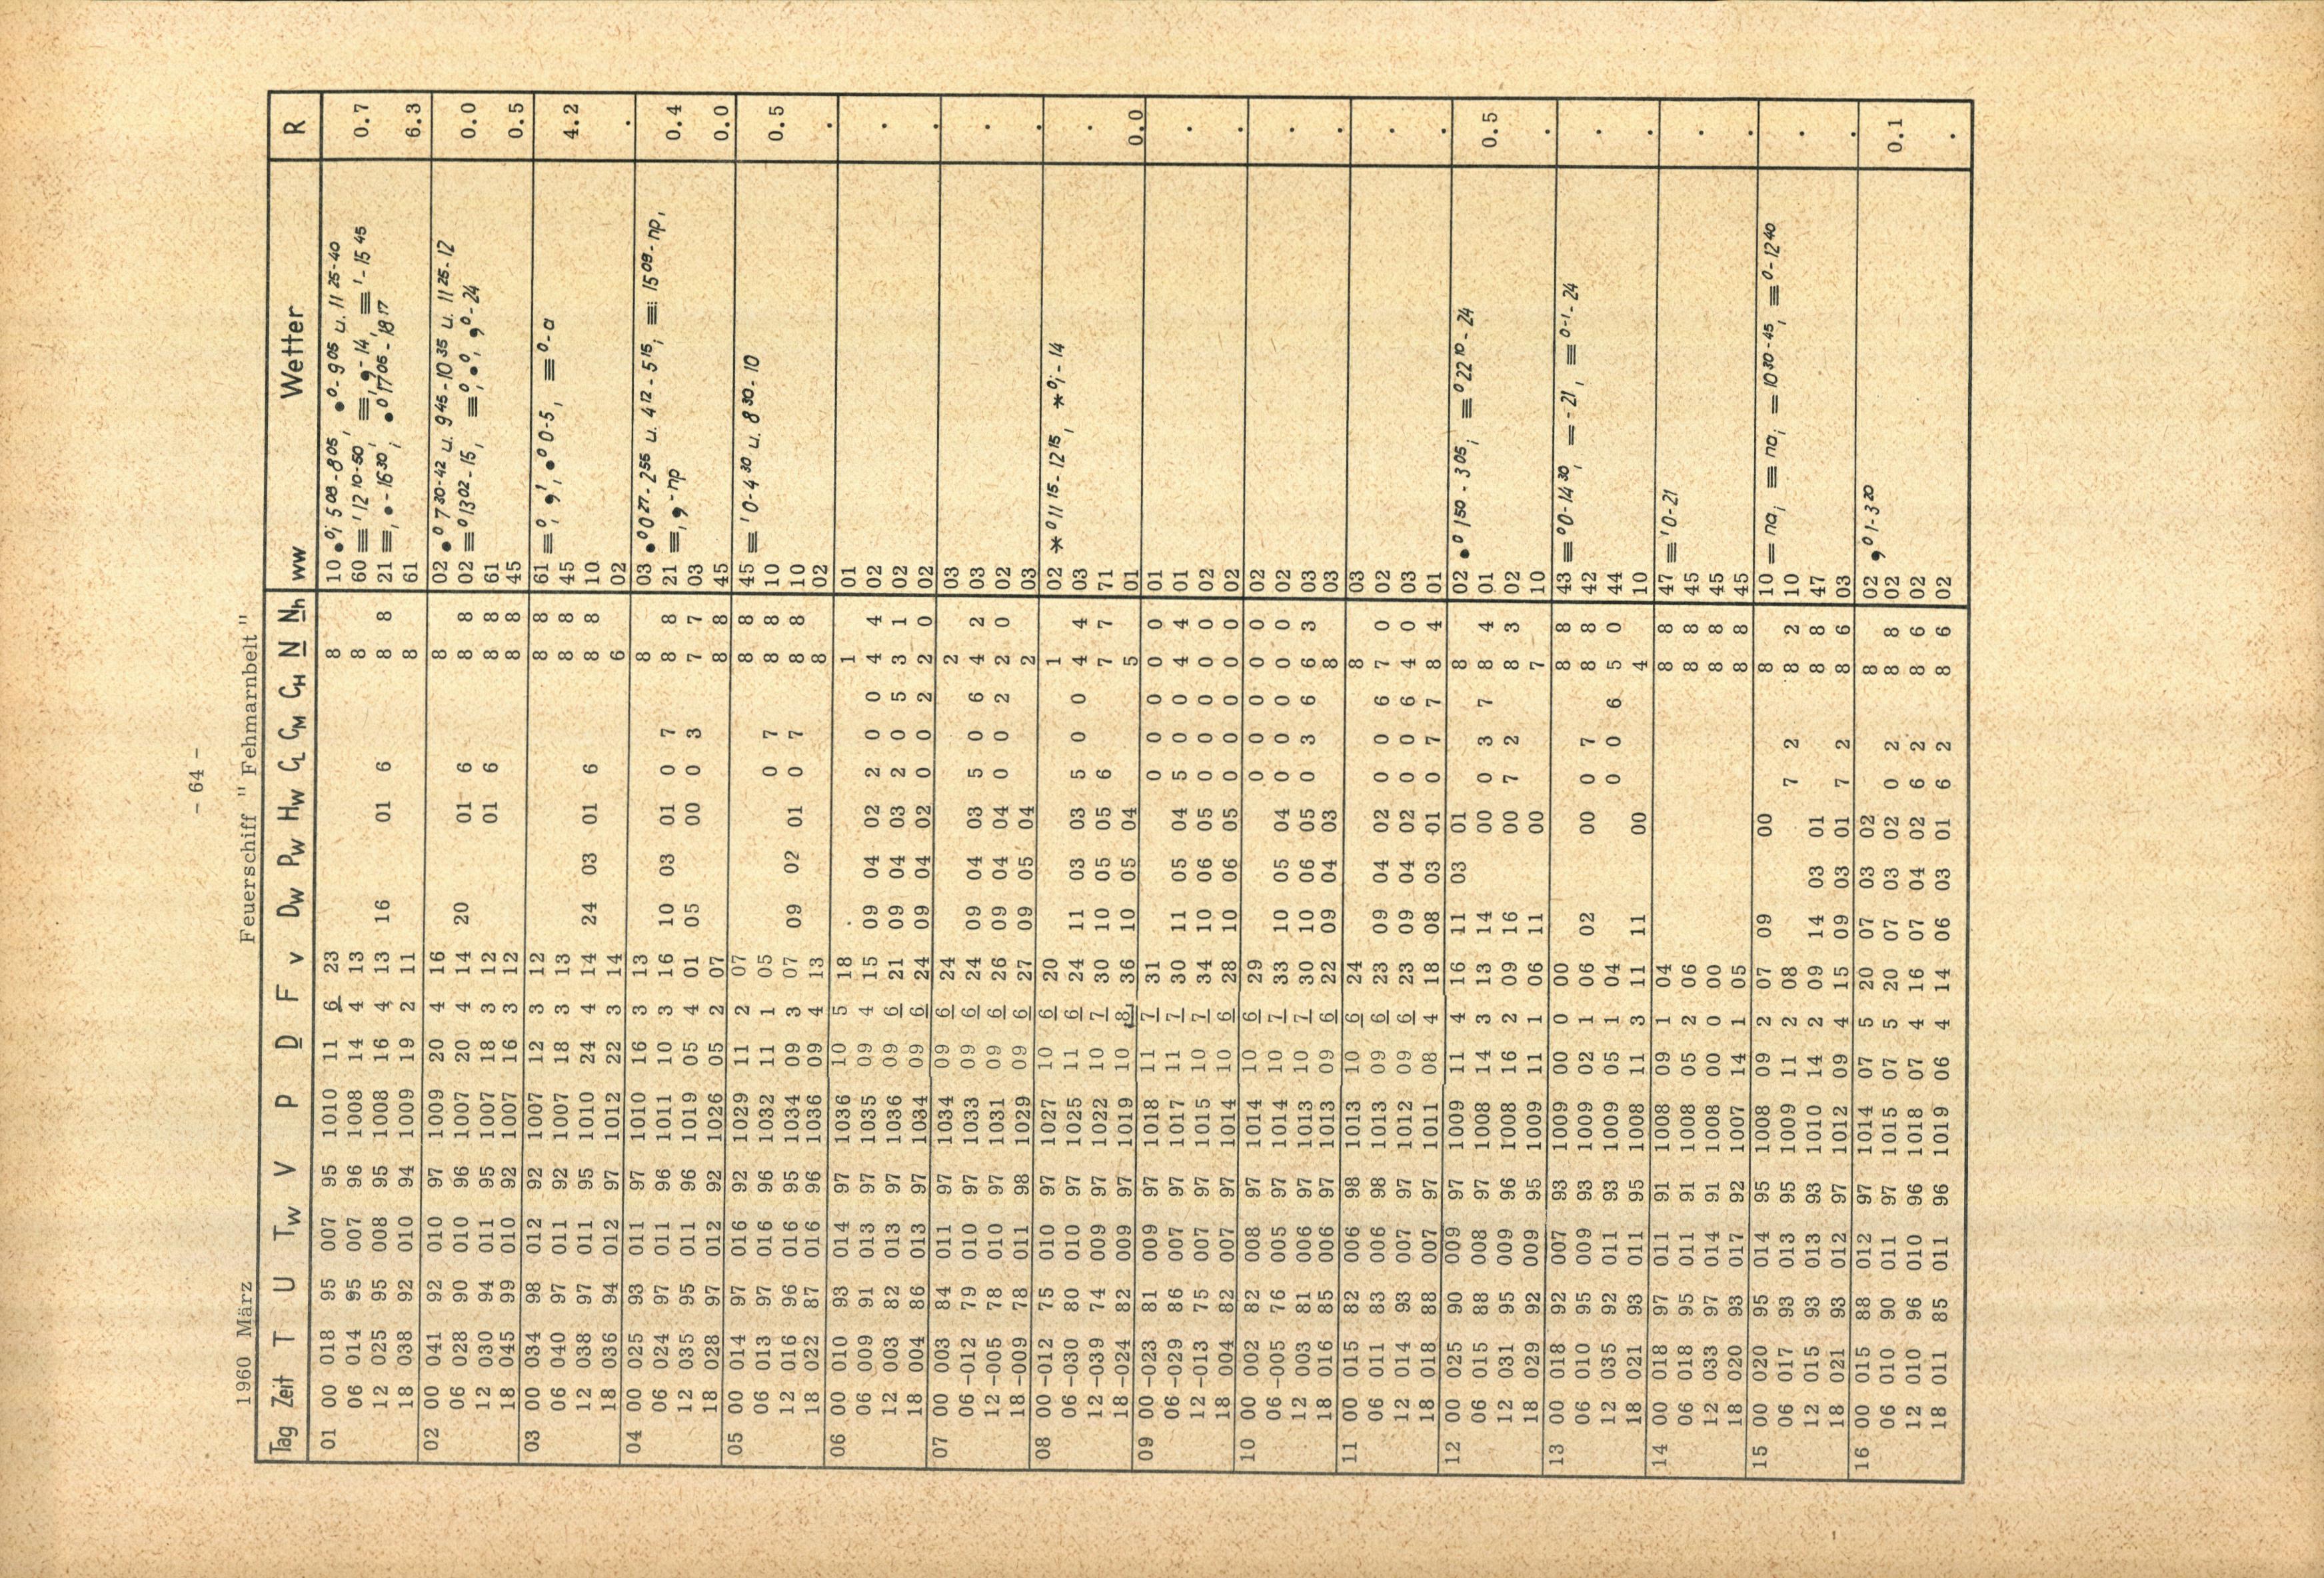 - 64 -
1960 März Feuerschiff " Fehmarnbelt "
Tag Zeit T U Tw V P D F v Dw Pw Hw CL CM CH N Nh ww Wetter R
01 00 018 95 007 95 1010 11 6 23 8 10 ●⁰i 5⁰⁸-8⁰⁵, ●⁰-9⁰⁵ u. 11²⁵-⁴⁰
06 014 95 007 96 1008 14 4 13 8 60 ≡'12¹⁰-⁵⁰, ≡, 9-14, ≡'-15⁴⁵ 0.7
12 025 95 008 95 1008 16 4 13 16 01 6 8 8 21 ≡, ●-16³⁰; ●⁰17⁰⁵-18¹⁷
18 038 92 010 94 1009 19 2 11 8 61 6.3
02 00 041 92 010 97 1009 20 4 16 8 02 ●⁰7³⁰-⁴² u. 9⁴⁵-10³⁵ u. 11²⁵-12
06 028 90 010 96 1007 20 4 14 20 01 6 8 8 02 ≡⁰13⁰²-15, ≡⁰, ●⁰, 9⁰-24 0.0
12 030 94 011 95 1007 18 3 12 01 6 8 8 61
18 045 99 010 92 1007 16 3 12 8 8 45 0.5
03 00 034 98 012 92 1007 12 3 12 8 8 61 ≡⁰, 9', ●⁰0-5, ≡⁰-a
06 040 97 011 92 1007 18 3 13 8 8 45 4.2
12 038 97 011 95 1010 24 4 14 24 03 01 6 8 8 10
18 036 94 012 97 1012 22 3 14 6 02 .
04 00 025 93 011 97 1010 16 3 13 8 03 ●⁰0²⁷-2⁵⁵ u. 4¹²-5¹⁵, ≡: 15⁰⁸-np,
06 024 97 011 96 1011 10 3 16 10 03 01 0 7 8 8 21 ≡, 9-np 0.4
12 035 95 011 96 1019 05 4 01 05 00 0 3 7 7 03
18 028 97 012 92 1026 05 2 07 8 8 45 0.0
05 00 014 97 016 92 1029 11 2 07 8 8 45 ≡'0-4³⁰ u. 8³⁰-10
06 013 97 016 96 1032 11 1 05 0 7 8 8 10 0.5
12 016 96 016 95 1034 09 3 07 09 02 01 0 7 8 8 10
18 022 87 016 96 1036 09 4 13 8 02 .
06 00 010 93 014 97 1036 10 5 18 1 01
06 009 91 013 97 1035 09 4 15 09 04 02 2 0 0 4 4 02 .
12 003 82 013 97 1036 09 6 21 09 04 03 2 0 5 3 1 02
18 004 86 013 97 1034 09 6 24 09 04 02 0 0 2 2 0 02 .
07 00 003 84 011 97 1034 09 6 24 2 03
06 -012 79 010 97 1033 09 6 24 09 04 03 5 0 6 4 2 03 .
12 -005 78 010 97 1031 09 6 26 09 04 04 0 0 2 2 0 02
18 -009 78 011 98 1029 09 6 27 09 05 04 2 03 .
08 00 -012 75 010 97 1027 10 6 20 1 02 *⁰11¹⁵-12¹⁵, *⁰i-14
06 -030 80 010 97 1025 11 6 24 11 03 03 5 0 0 4 4 03 .
12 -039 74 009 97 1022 10 7 30 10 05 05 6 7 7 71
18 -024 82 009 97 1019 10 8 36 10 05 04 5 01 0.0
09 00 -023 81 009 97 1018 11 7 31 0 0 0 0 0 01
06 -029 86 007 97 1017 11 7 30 11 05 04 5 0 0 4 4 01 .
12 -013 75 007 97 1015 10 7 34 10 06 05 0 0 0 0 0 02
18 004 82 007 97 1014 10 6 28 10 06 05 0 0 0 0 0 02 .
10 00 002 82 008 97 1014 10 6 29 0 0 0 0 0 02
06 -005 76 005 97 1014 10 7 33 10 05 04 0 0 0 0 0 02 .
12 003 81 006 97 1013 10 7 30 10 06 05 0 3 6 6 3 03
18 016 85 006 97 1013 09 6 22 09 04 03 8 03 .
11 00 015 82 006 98 1013 10 6 24 8 03
06 011 83 006 98 1013 09 6 23 09 04 02 0 0 6 7 0 02 .
12 014 93 007 97 1012 09 6 23 09 04 02 0 0 6 4 0 03
18 018 88 007 97 1011 08 4 18 08 03 01 0 7 7 8 4 01 .
12 00 025 90 009 97 1009 11 4 16 11 03 01 8 02 ●⁰1⁵⁰-3⁰⁵; ≡⁰22¹⁰-24
06 015 88 008 97 1008 14 3 13 14 00 0 3 7 8 4 01 0.5
12 031 95 009 96 1008 16 2 09 16 00 7 2 8 3 02
18 029 92 009 95 1009 11 1 06 11 00 7 10 .
13 00 018 92 007 93 1009 00 0 00 8 8 43 ≡⁰0-14³⁰, =-21, ≡⁰⁻¹-24
06 010 95 009 93 1009 02 1 06 02 00 0 7 8 8 42 .
12 035 92 011 93 1009 05 1 04 0 0 6 5 0 44
18 021 93 011 95 1008 11 3 11 11 00 4 10 .
14 00 018 97 011 91 1008 09 1 04 8 8 47 ≡'0-21
06 018 95 011 91 1008 05 2 06 8 8 45 .
12 033 97 014 91 1008 00 0 00 8 8 45
18 020 93 017 92 1007 14 1 05 8 8 45 .
15 00 020 95 014 95 1008 09 2 07 09 00 8 10 = na, ≡ na, =10³⁰-⁴⁵, ≡⁰-12⁴⁰
06 017 93 013 95 1009 11 2 08 7 2 8 2 10 .
12 015 93 013 93 1010 14 2 09 14 03 01 8 8 47
18 021 93 012 97 1012 09 4 15 09 03 01 7 2 8 6 03 .
16 00 015 88 012 97 1014 07 5 20 07 03 02 8 02 9⁰1-3²⁰
06 010 90 011 97 1015 07 5 20 07 03 02 0 2 8 8 02 0.1
12 010 96 010 96 1018 07 4 16 07 04 02 6 2 8 6 02
18 011 85 011 96 1019 06 4 14 06 03 01 6 2 8 6 02 .